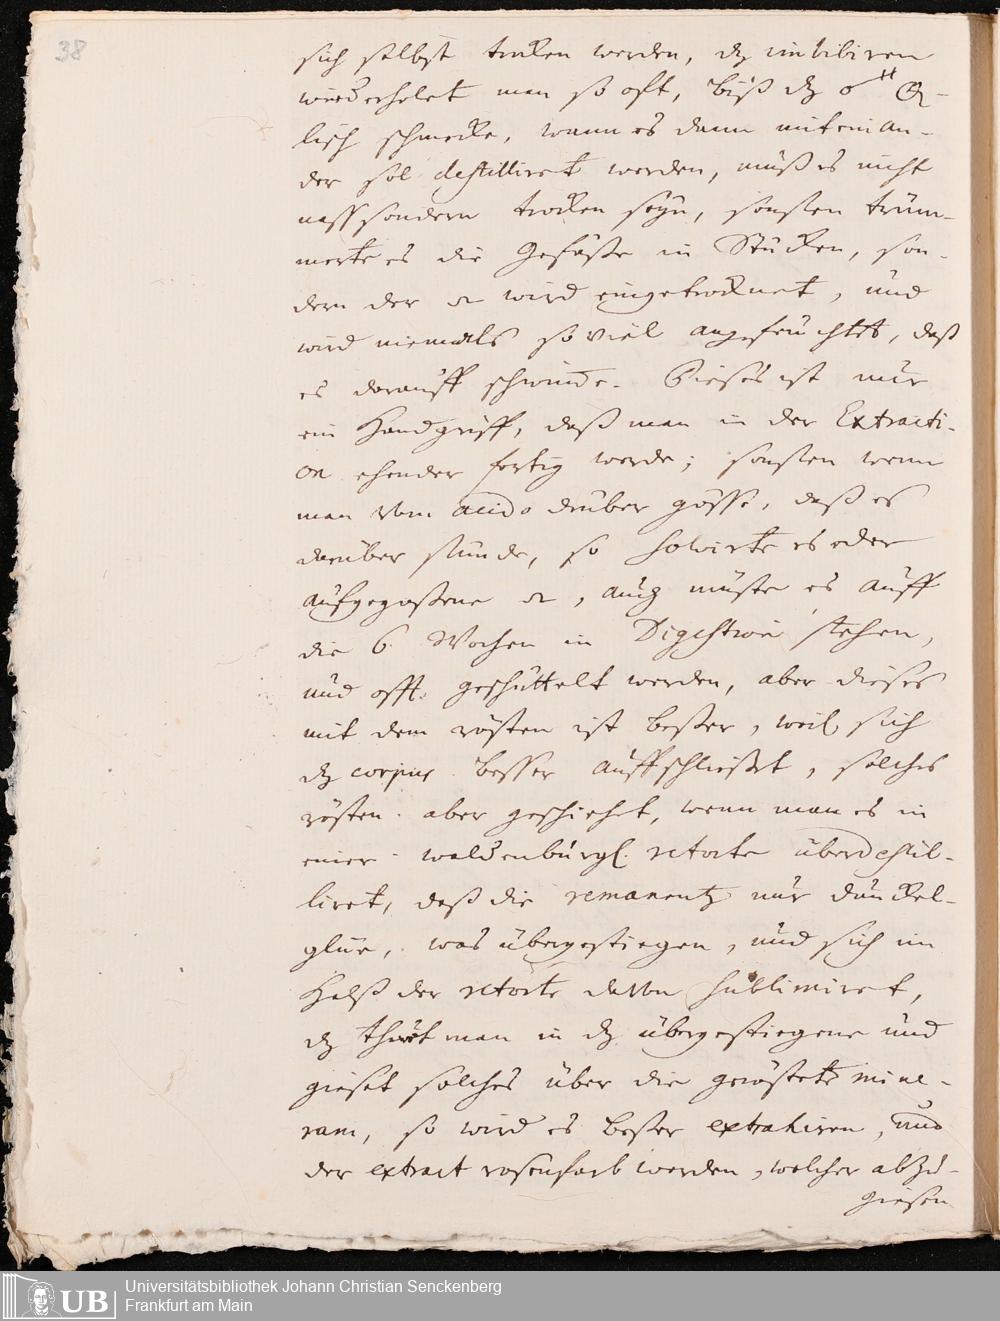 38
sich selbst truken werden, dz imbibiren
wiederholet man so oft, biß dz
lisch schmecke, wann es dann mit einan-
der sol destilliret werden, muß es nicht
naß sondern trocken seyn, sonsten trüm-
merte es die Gefäße in Stücken, son-
dern der wird eingetrocknet, und
wird niemals so viel angefeuchtet, daß
es darauff schwimme. Dieses ist nur
ein Handgriff, daß man in der Extracti-
on ehender fertig werde; sonsten wenn
man vom acido drüber göße, daß es
darüber stünde, so solvirte es der
aufgegoßene, auch müste es auff
die 6 Wochen in Digestion stehen,
und offt geschüttelt werden, aber dieses
mit dem rösten ist beßer, weil sich
dz corpus besser auffschließet, solches
rösten aber geschiehet, wenn man es in
einer waldenburgl. retorte überdestil-
liret, daß die remanentz nur dunckel-
glüe, was übergestiegen, und sich im
Halß der retorte davon sublimiret,
dz thut man in dz übergestiegene und
gießt solches über die geröstete mine-
ram, so wird es beßer extrahiren, und
der extract rosenfarb werden, welcher abzu-
giesen
UB
Universitätsbibliothek Johann Christian Senckenberg
Frankfurt am Main